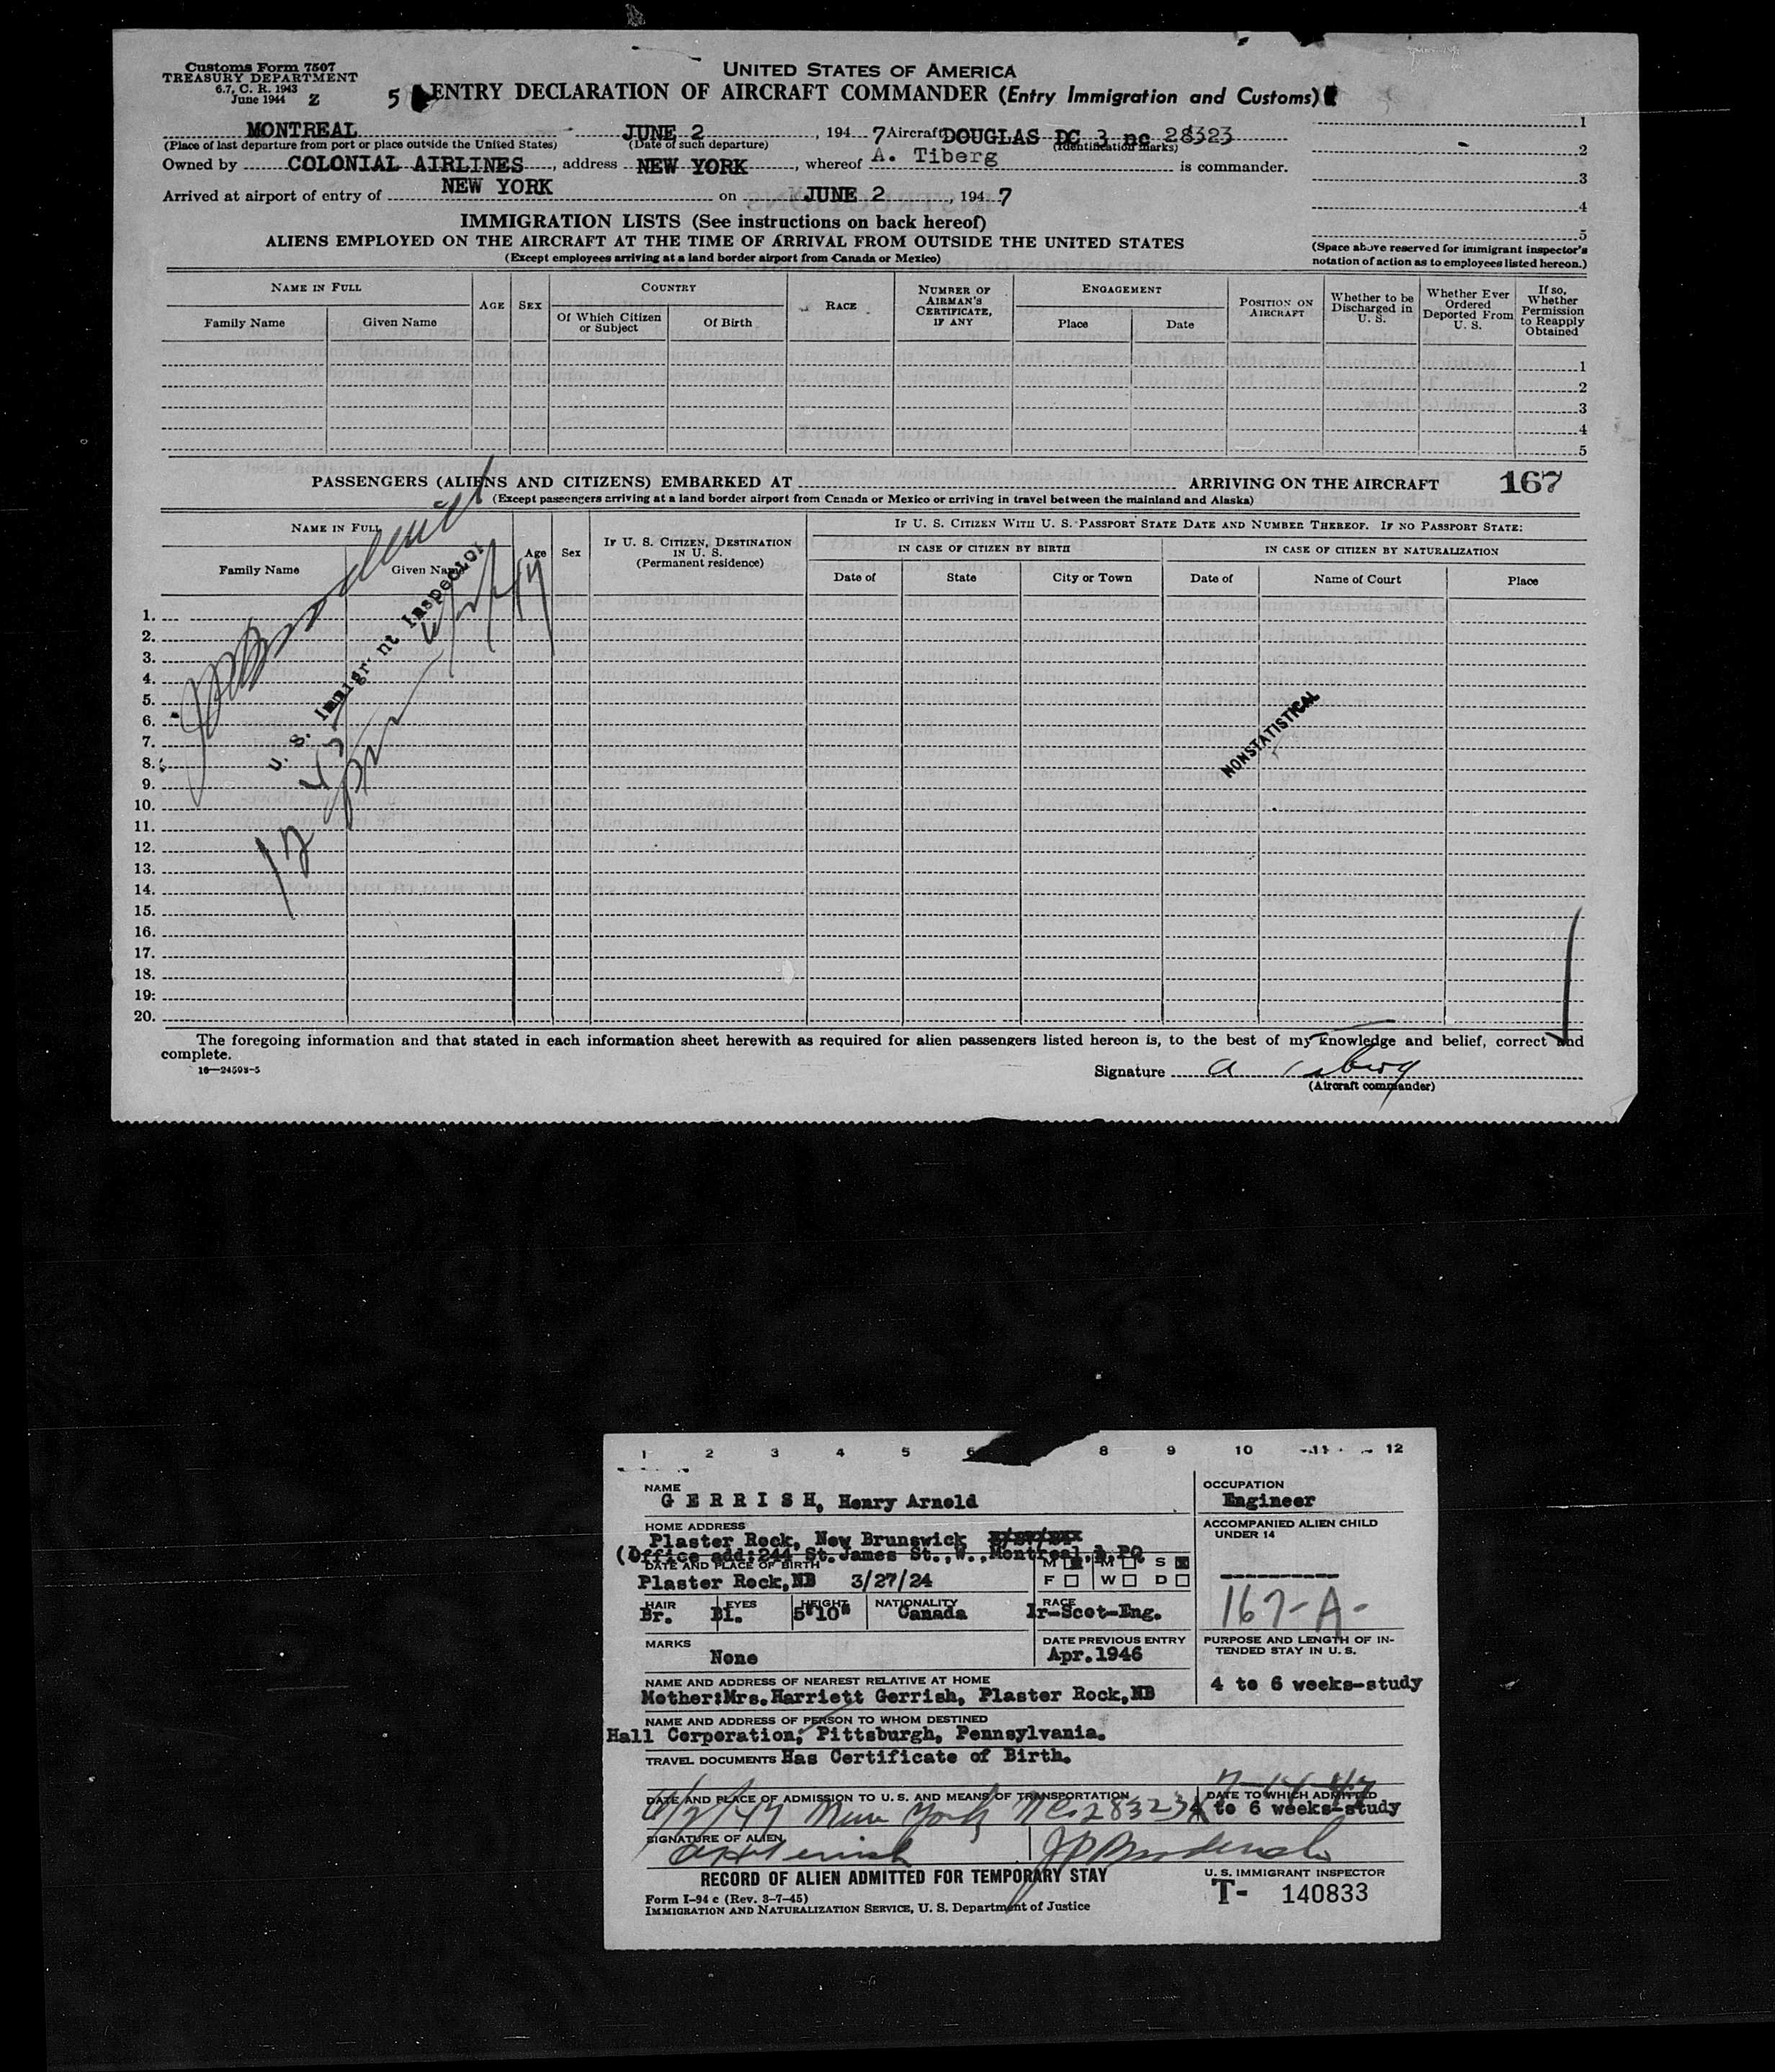 Customs Form 7507
TREASURY DEPARTMENT
6.7, C. R. 1943
June 1944 Z
UNITED STATES OF AMERICA
5 ENTRY DECLARATION OF AIRCRAFT COMMANDER (Entry Immigration and Customs)
MONTREAL JUNE 2, 1947 Aircraft DOUGLAS DC 3 nc 28323
(Place of last departure from port or place outside the United States) (Date of such departure) (Identification marks)
Owned by COLONIAL AIRLINES, address NEW YORK, whereof A. Tiberg is commander.
Arrived at airport of entry of NEW YORK on JUNE 2, 1947
1
2
3
4
5
(Space above reserved for immigrant inspector's notation of action as to employees listed hereon.)
IMMIGRATION LISTS (See instructions on back hereof)
ALIENS EMPLOYED ON THE AIRCRAFT AT THE TIME OF ARRIVAL FROM OUTSIDE THE UNITED STATES
(Except employees arriving at a land border airport from Canada or Mexico)
NAME IN FULL AGE SEX COUNTRY RACE NUMBER OF AIRMAN'S CERTIFICATE, IF ANY ENGAGEMENT POSITION ON AIRCRAFT Whether to be Discharged in U. S. Whether Ever Ordered Deported From U. S. If so, Whether Permission to Reapply Obtained
Family Name Given Name Of Which Citizen or Subject Of Birth Place Date
1
2
3
4
5
PASSENGERS (ALIENS AND CITIZENS) EMBARKED AT ARRIVING ON THE AIRCRAFT 167
(Except passengers arriving at a land border airport from Canada or Mexico or arriving in travel between the mainland and Alaska)
NAME IN FULL Age Sex IF U. S. CITIZEN, DESTINATION IN U. S. (Permanent residence) IF U. S. CITIZEN WITH U. S. PASSPORT STATE DATE AND NUMBER THEREOF. IF NO PASSPORT STATE:
IN CASE OF CITIZEN BY BIRTH IN CASE OF CITIZEN BY NATURALIZATION
Family Name Given Name Date of State City or Town Date of Name of Court Place
U. S. Immigrant Inspector
NONSTATISTICAL
1.
2.
3.
4.
5.
6.
7.
8.
9.
10.
11.
12.
13.
14.
15.
16.
17.
18.
19.
20.
The foregoing information and that stated in each information sheet herewith as required for alien passengers listed hereon is, to the best of my knowledge and belief, correct and
complete.
16—24598-5
Signature A Tiberg
(Aircraft commander)
1 2 3 4 5 6 8 9 10 11 12
NAME
GERRISH, Henry Arnold
OCCUPATION
Engineer
HOME ADDRESS
Plaster Rock, New Brunswick
(Office add:244 St.James St.,W.,Montreal,1,PQ
ACCOMPANIED ALIEN CHILD
UNDER 14
DATE AND PLACE OF BIRTH
Plaster Rock,NB 3/27/24
M M S
F W D
167-A-
HAIR EYES HEIGHT NATIONALITY RACE
Br. Bl. 5'10" Canada Ir-Scot-Eng.
MARKS
None
DATE PREVIOUS ENTRY
Apr.1946
PURPOSE AND LENGTH OF IN-
TENDED STAY IN U. S.
4 to 6 weeks-study
NAME AND ADDRESS OF NEAREST RELATIVE AT HOME
Mother:Mrs.Harriett Gerrish, Plaster Rock,NB
NAME AND ADDRESS OF PERSON TO WHOM DESTINED
Hall Corporation; Pittsburgh, Pennsylvania.
TRAVEL DOCUMENTS Has Certificate of Birth.
DATE AND PLACE OF ADMISSION TO U. S. AND MEANS OF TRANSPORTATION
6/2/47 New York NC 28323
DATE TO WHICH ADMITTED
7-14-47
4 to 6 weeks-study
SIGNATURE OF ALIEN
RECORD OF ALIEN ADMITTED FOR TEMPORARY STAY
U. S. IMMIGRANT INSPECTOR
Form I-94 c (Rev. 3-7-45)
IMMIGRATION AND NATURALIZATION SERVICE, U. S. Department of Justice
T- 140833